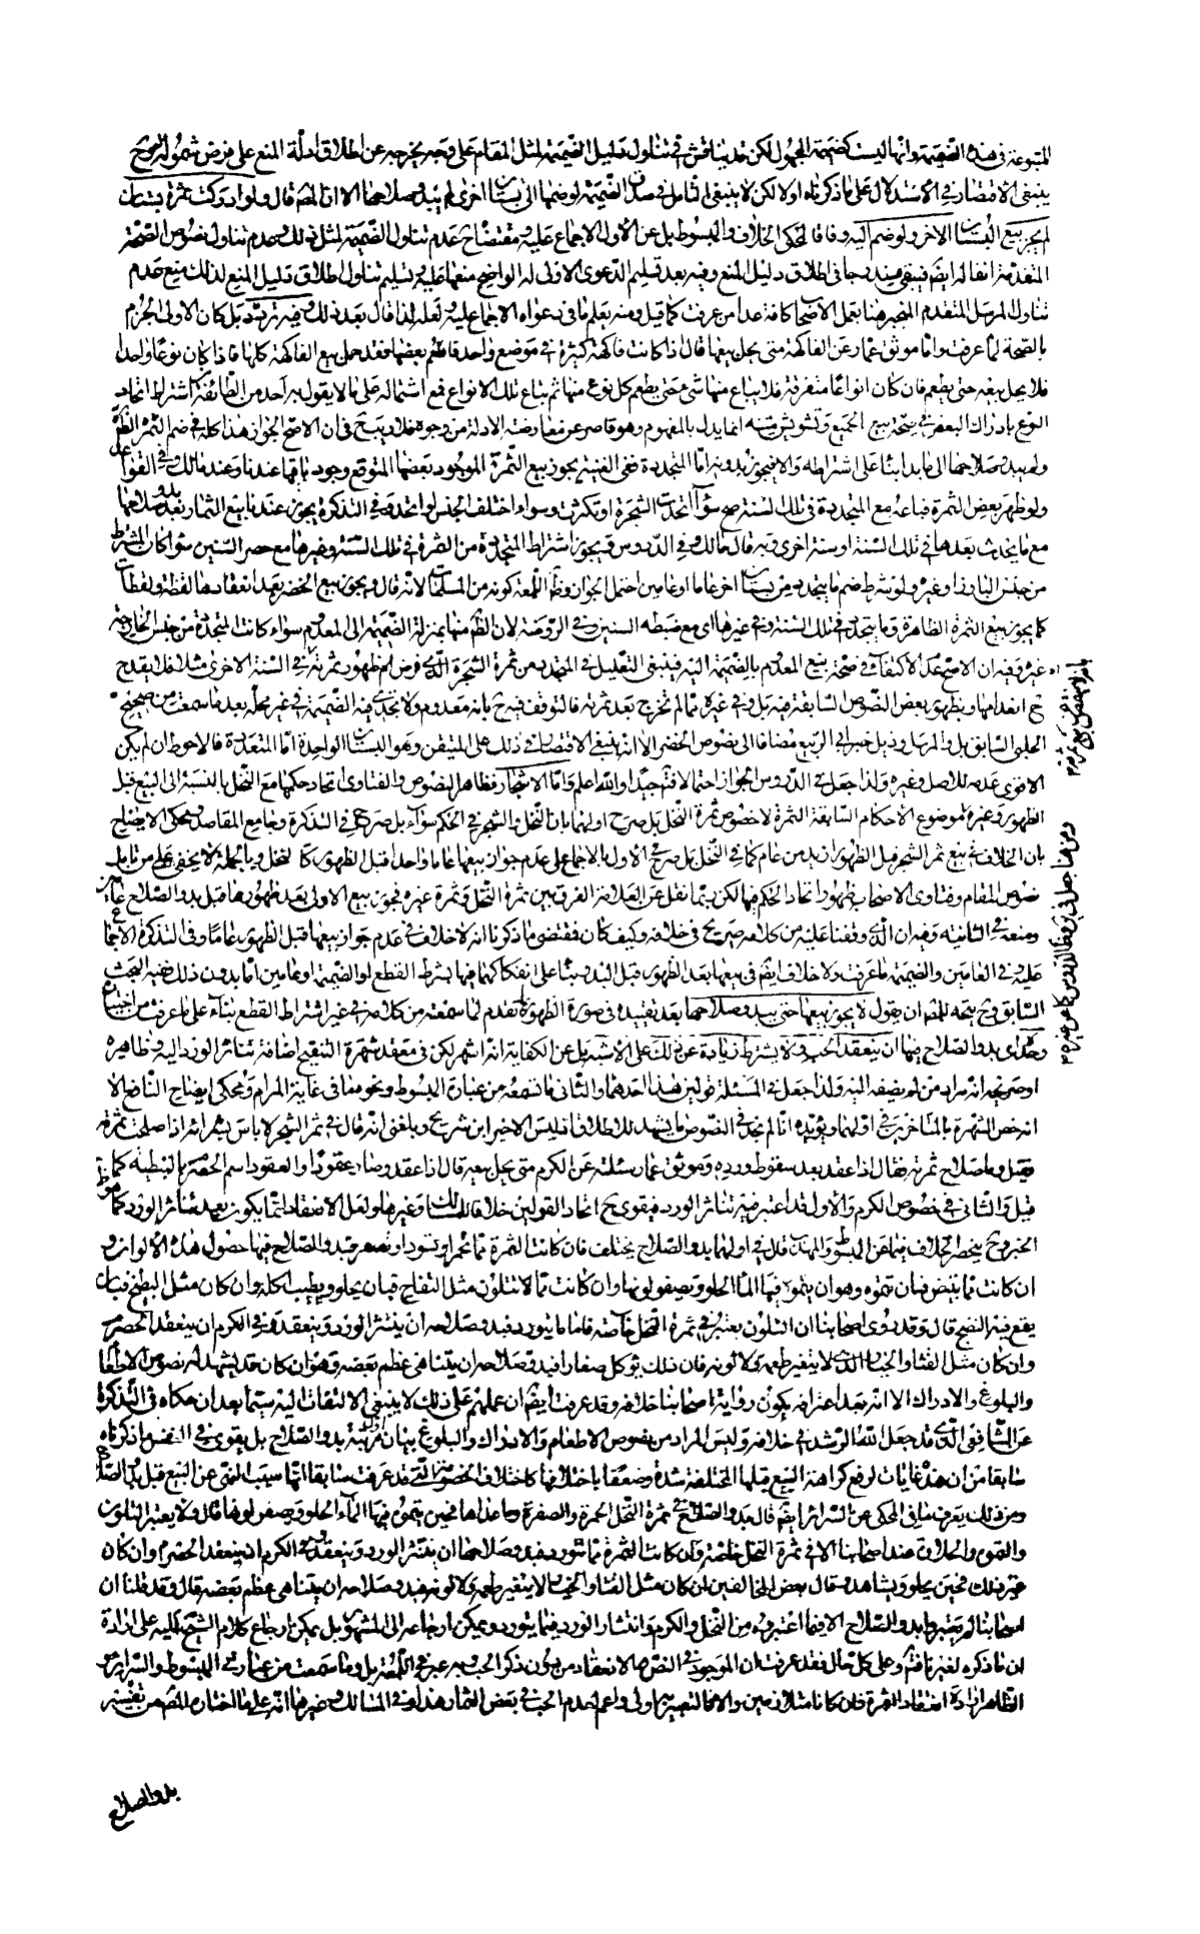 المتبوعة في هذه الضميمة وانها ليست كضميمة المجهول لكن قد يناقش في تناول دليل الضميمة لمثل المقام على وجه يخرجه عن اطلاق ادلة المنع على فرض شموله
ينبغي الاقتصار في الاستدلال على ما ذكرناه اولا لكن لا ينبغي التأمل في الضميمة لوضمها الى بستان اخرى لم يبد صلاحها الا ان المصنف قال ولو ادركت ثمرة بستان
لم يجز بيع البستان الاخر ولو ضم اليه وفاقا لمحكي الخلاف والمبسوط بل عن الاول الاجماع عليه ومقتضاه عدم تناول الضميمة لمثل ذلك وعدم تناول نصوص الصحة
المتقدمة آنفا له ايضا فيبقى مندرجا في اطلاق دليل المنع وفيه بعد تسليم الدعوى الاولى له الواضح منعها عليه تسليم تناول اطلاق دليل المنع لذلك منع عدم
تناول المرسل المتقدم المنجبر هنا بعمل الاصحاب كافة عدا من عرفت كما قيل ومنه يعلم ما في دعواه الاجماع عليه ولعله لذا قال بعد ذلك وفيه تردد بل كان الاولى الجزم
بالصحة لما عرفت واما موثق عمار عن الفاكهة متى يحل بيعها قال اذا كانت فاكهة كثيرة في موضع واحد فاطعم بعضها فقد حل بيع الفاكهة كلها فاذا كان نوعا واحدا
فلا يحل بيعه حتى يطعم فان كان انواعا متفرقة فلا يباع منها شيء حتى يطعم كل نوع منها ثم تباع تلك الانواع فمع اشتماله على ما لا يقول به احد من الطائفة كاشتراط اتحاد
النوع بادراك البعض في صحة بيع الجميع وتشويش متنه انما يدل بالمفهوم وهو قاصر عن معارضة الادلة من وجوه فلا ريب في ان الاصح الجواز هذا كله في ضم الثمر
ولم يبد صلاحها الى ما بدا بناء على اشتراطه والا فيجوز بدونه اما المتجددة ففي الغنية يجوز بيع الثمرة الموجود بعضها المتوقع وجود باقيها عندنا وعند مالك وفي القواعد
ولو ظهر بعض الثمرة فباعه مع المتجددة في تلك السنة صح سواء اتحدت الشجرة او تكثرت وسواء اختلف الجنس او اتحد وفي التذكرة يجوز عندنا بيع الثمار بعد بدو صلاحها
مع ما يحدث بعدها في تلك السنة او سنة اخرى وبه قال مالك وفي الدروس ويجوز اشتراط المتجددة من الثمرة في تلك السنة وغيرها مع حصر السنين سواء كان المشترط
من جنس البارز او غيره ولو شرط ضم ما يتجدد من بستان اخر عاما او عامين احتمل الجواز وظاهر اللمعة كونه من المسلمات لانه قال ويجوز بيع الخضر بعد انعقادها لقطة ولقطات
كما يجوز بيع الثمرة الظاهرة وما يتجدد في تلك السنة وفي غيرها اي مع ضبطه السنين في الروضة لان الظاهر منها بمنزلة الضميمة الى المعدوم سواء كانت المتجددة من جنس الخارجة
غيره وفيه ان الاصح عدم الاكتفاء في صحة بيع المعدوم بالضميمة اليه فينبغي التعليل في المتجدد من ثمرة الشجرة الذي فرض لم ظهور ثمرته في السنة الاخرى مثلا فلا يقدح
انعدامها وبظهور بعض النصوص السابقة فيه بل وفي غيره مما لم تخرج بعد ثمرته فالتوقف فيه بانه معدوم ولا تجدي فيه الضميمة في غير محله بعد ما سمعت من صحيح
الحلبي السابق بل والمرسل وذيل خبر ابي الربيع مضافا الى نصوص الخضر الا انه ينبغي الاقتصار في ذلك على المتيقن وهو البستان الواحد اما المتعددة فالاحوط ان لم يكن
الاقوى عدمه للاصل وغيره ولذا جعل في الدروس الجواز احتمالا فتأمل جيدا والله اعلم واما الاشجار فظاهر النصوص والفتاوى اتحاد حكمها مع النخل بالنسبة الى البيع قبل
الظهور وغيره لموضوع الاحكام السابقة الثمرة لا خصوص ثمرة النخل بل صرح اولهما بان النخل والشجر في الحكم سواء بل صرح في التذكرة وجامع المقاصد ومحكي الايضاح
بان الخلاف في بيع ثمر الشجر قبل الظهور ازيد من عام كما في النخل بل صرح الاول بالاجماع على عدم جواز بيعها عاما واحدا قبل الظهور كالنخل وبالجملة لا يخفى على من تأمل
نصوص المقام وفتاوى الاصحاب ظهور اتحاد الحكم فيها لكن ربما نقل عن العلامة الفرق بين ثمرة النخل وثمرة غيره فجوز بيع الاولى بعد ظهورها قبل بدو الصلاح عامين
ومنعه في الثانية وفيه ان الذي وقفنا عليه من كلامه صريح في خلافه وكيف كان فمقتضى ما ذكرنا انه لا خلاف في عدم جواز بيعها قبل الظهور عاما وفي التذكرة الاجماع
عليه وفي العامين والضميمة ما عرفت ولا خلاف ايضا في بيعها بعد الظهور قبل البدو بناء على انفكاكهما فيها بشرط القطع او الضميمة او عامين اما بدون ذلك ففيه البحث
السابق وحينئذ يتجه للمصنف ان يقول لا يجوز بيعها حتى يبدو صلاحها بعد تقييده في صورة الظهور بما تقدم لما سمعته من كلامه في غير اشتراط القطع بناء على ما عرفت من
وحد اي بدو الصلاح فيها ان ينعقد الحب ولا يشترط زيادة عن ذلك على الاشبه بل عن الكفاية انه اشهر لكن في معقد شهرة التنقيح اضافة تناثر الورد اليه وظاهره
او صريحه انه مراد من لم يضفه اليه ولذا جعل في المسئلة قولين هذا احدهما والثاني ما تسمعه من عبارة المبسوط ونحو منا في غاية المرام ومحكي ايضاح النافع الا
انه خص الشهرة بالمتأخرين في اولهما ويؤيده انا لم نجد في النصوص ما يشهد للاطلاق اذ ليس الا خبر ابن شريح وبلغني انه قال في ثمر الشجر لا بأس بشرائه اذا صلحت ثمرته
فقيل وما صلاح ثمرته فقال اذا عقد بعد سقوط ورده وموثق عمار سئلته عن الكرم متى يحل بيعه قال اذا عقد وصار عقودا والعقود اسم الحصرم بالنبطية كما
قيل والثاني في خصوص الكرم والاول قد اعتبر فيه تناثر الورد فيقوى حينئذ اتحاد القولين خلافا للمسالك وغيرها ولعل الانعقاد انما يكون بعد تناثر الورد كما
الخبر وحينئذ ينحصر الخلاف فيما عن المبسوط والمهذب قال في اولهما بدو الصلاح يختلف فان كانت الثمرة مما تحمر او تسود او تصفر فبدو الصلاح فيها حصول هذه الالوان و
ان كانت مما تبيض فبان تموه وهو ان ينمو فيها الماء الحلو ويصفو لونها وان كانت مما لا تتلون مثل التفاح فبان يحلو ويطيب اكله وان كان مثل البطيخ فبان
يقع فيه النضج قال وقد روى اصحابنا ان التلون يعتبر في ثمرة النخل خاصة فاما ما يتورد فبدو صلاحه ان ينتثر الورد وينعقد وفي الكرم ان ينعقد الحصرم
وان كان مثل القثاء والخيار الذي لا يتغير طعمه ولا لونه فان ذلك يؤكل صغارا فبدو صلاحه ان يتناهى عظم بعضه وهو ان كان قد يشهد له نصوص الاطعام
والبلوغ والادراك الا انه بعد اعترافه بكون رواية اصحابنا خلافه وقد عرفت ايضا ان عملهم على ذلك لا ينبغي الالتفات اليه سيما بعد ان حكاه في التذكرة
عن الشافعي الذي قد جعل الله الرشد في خلافه وليس المراد من نصوص الاطعام والادراك والبلوغ بيان مرتبة بدو الصلاح بل يقوى في النفس ما ذكرناه
سابقا من ان هذه غايات لرفع كراهة البيع قبلها المختلفة شدة وضعفا باختلافها كاختلاف الخصومة التي قد عرفت سابقا انها سبب النهي عن البيع قبل بدو الصلاح
ومن ذلك يعرف ما في المحكي عن السرائر ايضا قال بدو الصلاح في ثمرة النخل الحمرة والصفرة وما عداها فحين يتموه فيها الماء الحلو ويصفو لونها قال ولا يعتبر التلون
والتموه والحلاوة عند اصحابنا الا في ثمرة النخل خاصة وان كانت الثمرة مما تتورد فبدو صلاحها ان ينتثر الورد وينعقد وفي الكرم ان ينعقد الحصرم وان كان
غير ذلك فحين يحلو ويشاهد وقال بعض المخالفين ان كان مثل القثاء والخيار لا يتغير طعمه ولا لونه فبدو صلاحه ان يتناهى عظم بعضه قال وقد قلنا ان
اصحابنا لم يعتبروا بدو الصلاح الا فيما اعتبروه من النخل والكرم وانتشار الورد فيما يتورد ويمكن ارجاعه الى المشهور بل يمكن ارجاع كلام الشيخ اليه على ارادة
ان ما ذكره لغيرنا فتأمل وعلى كل حال فقد عرفت ان الموجود في النص الانعقاد من دون ذكر الحب وبه عبر في اللمعة بل وما سمعت من عبارتي المبسوط والسرائر
الظاهر ارادة انعقاد الثمرة فان كانا متلازمين والا فالتعبير به اولى واعم لعدم الحب في بعض الثمار هذا وفي المسالك وغيرها انه على ما اختاره المصنف من تفسير
بدو الصلاح